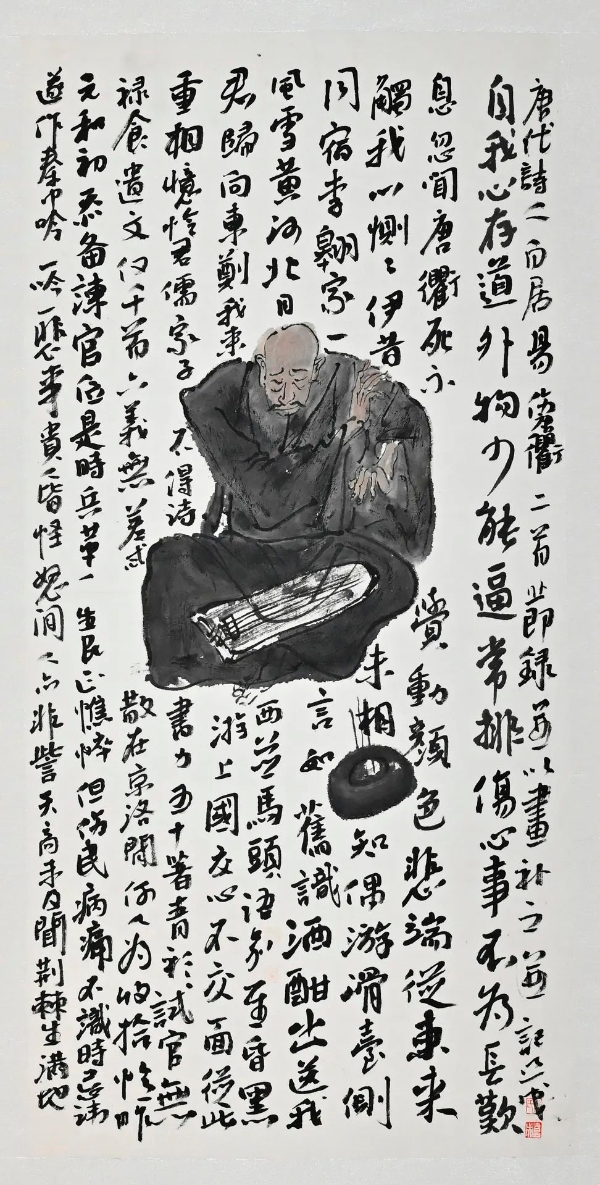 唐代詩人白居易傷唐衢二首節錄並以畫補之並記
自我心存道外物少能逼常排傷心事不為長歎
息忽聞唐衢死不覺動顏色悲端從東來
觸我心惻〻伊昔未相知偶游滑臺側
同宿李翱家一言如舊識酒酣出送我
風雪黃河北日西並馬頭語別至昏黑
君歸向東鄭我來游上國交心不交面從此
重相憶憐君儒家子不得詩書力五十著青衫試官無
祿食遺文仅千首六義無差忒散在京洛間何人為收拾惟昨
元和初忝備諫官位是時兵革生民正憔悴但傷民病痛不識時忌諱
遂作秦中吟一吟一悲事貴人皆怪怒閒人亦非訾天高未及聞荊棘生滿地